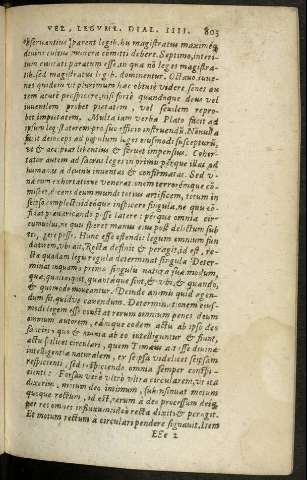 VEL, LEGVM. DIAL. IIII. 803
observantius parent legib. hu magistratus maximè
divini cultus munera cõmitti debere. Septimo, interi-
tum civitati paratum esse, in qua nõ leges magistra-
tib. sed magistratus legib. dominentur. Octavo, iuve-
nes quidem ut plurimum hæc obtusè videre, senes au
tem acutè perspicere, nisi fortè quandoque deus vel
iuventem probet pietatem, vel senilem repro-
bet impietatem. Multa iam verba Plato facit ad
ipsum leg statorem pro suo officio instruendũ. Nonulla
facit deinceps ad populum leges eiusmodi suscepturũ,
ut & accipiat libentius & servet impensius. Cohor-
tatur autem ad sacras leges in primis, perque illas ad
humanas à divinis inventas & confirmatas. Sed
cum exhortatione veneranum terroremque cõ-
miscet, docens deum mundi totius artificem, totum in
seipso complecti, ideoque inspicere singula, ne qui co-
gitat prævaricando posse latere: perque omnia cir-
cumvolui, ne quis speret manus eius post delictum sub
ter gere posse. Hunc esse ostendit legum omnium fun
datorem, ubi ait, Recta definit & peragit, id est, re-
cta quadam legis regula determinat singula. Deter-
minat inquam primò singulis naturæ suæ modum,
quæ, qualiacunque, quantaque sint, & ubi, & quando,
& quomodo moveantur. Deinde animis quid agen-
dum sit, quidve cavendum. Determinationem eius-
modi legem esse constat rerum omnium penes deum
omnium autorem, eamque eodem actu ab ipso deo
sancitur quo & omnia ab eo intelliguntur & fiunt,
actu scilicet circulari, quem Timæus ait esse divinæ
intelligentiæ naturalem, ex seipsa videlicet seipsam
respicienti, sed inspiciendo omnia semper conspi-
cienti: Forsan verò vltrò vltra circularem, vt ita
dixerim, motum dei intimum, subinsinuat motum
quoque rectum, id est, rerum à deo processum deiq́;
per res omnes influxum: ideo recta dixit & peragit.
Et motum rectum à circulari pendere signavit. Item
EEe 2